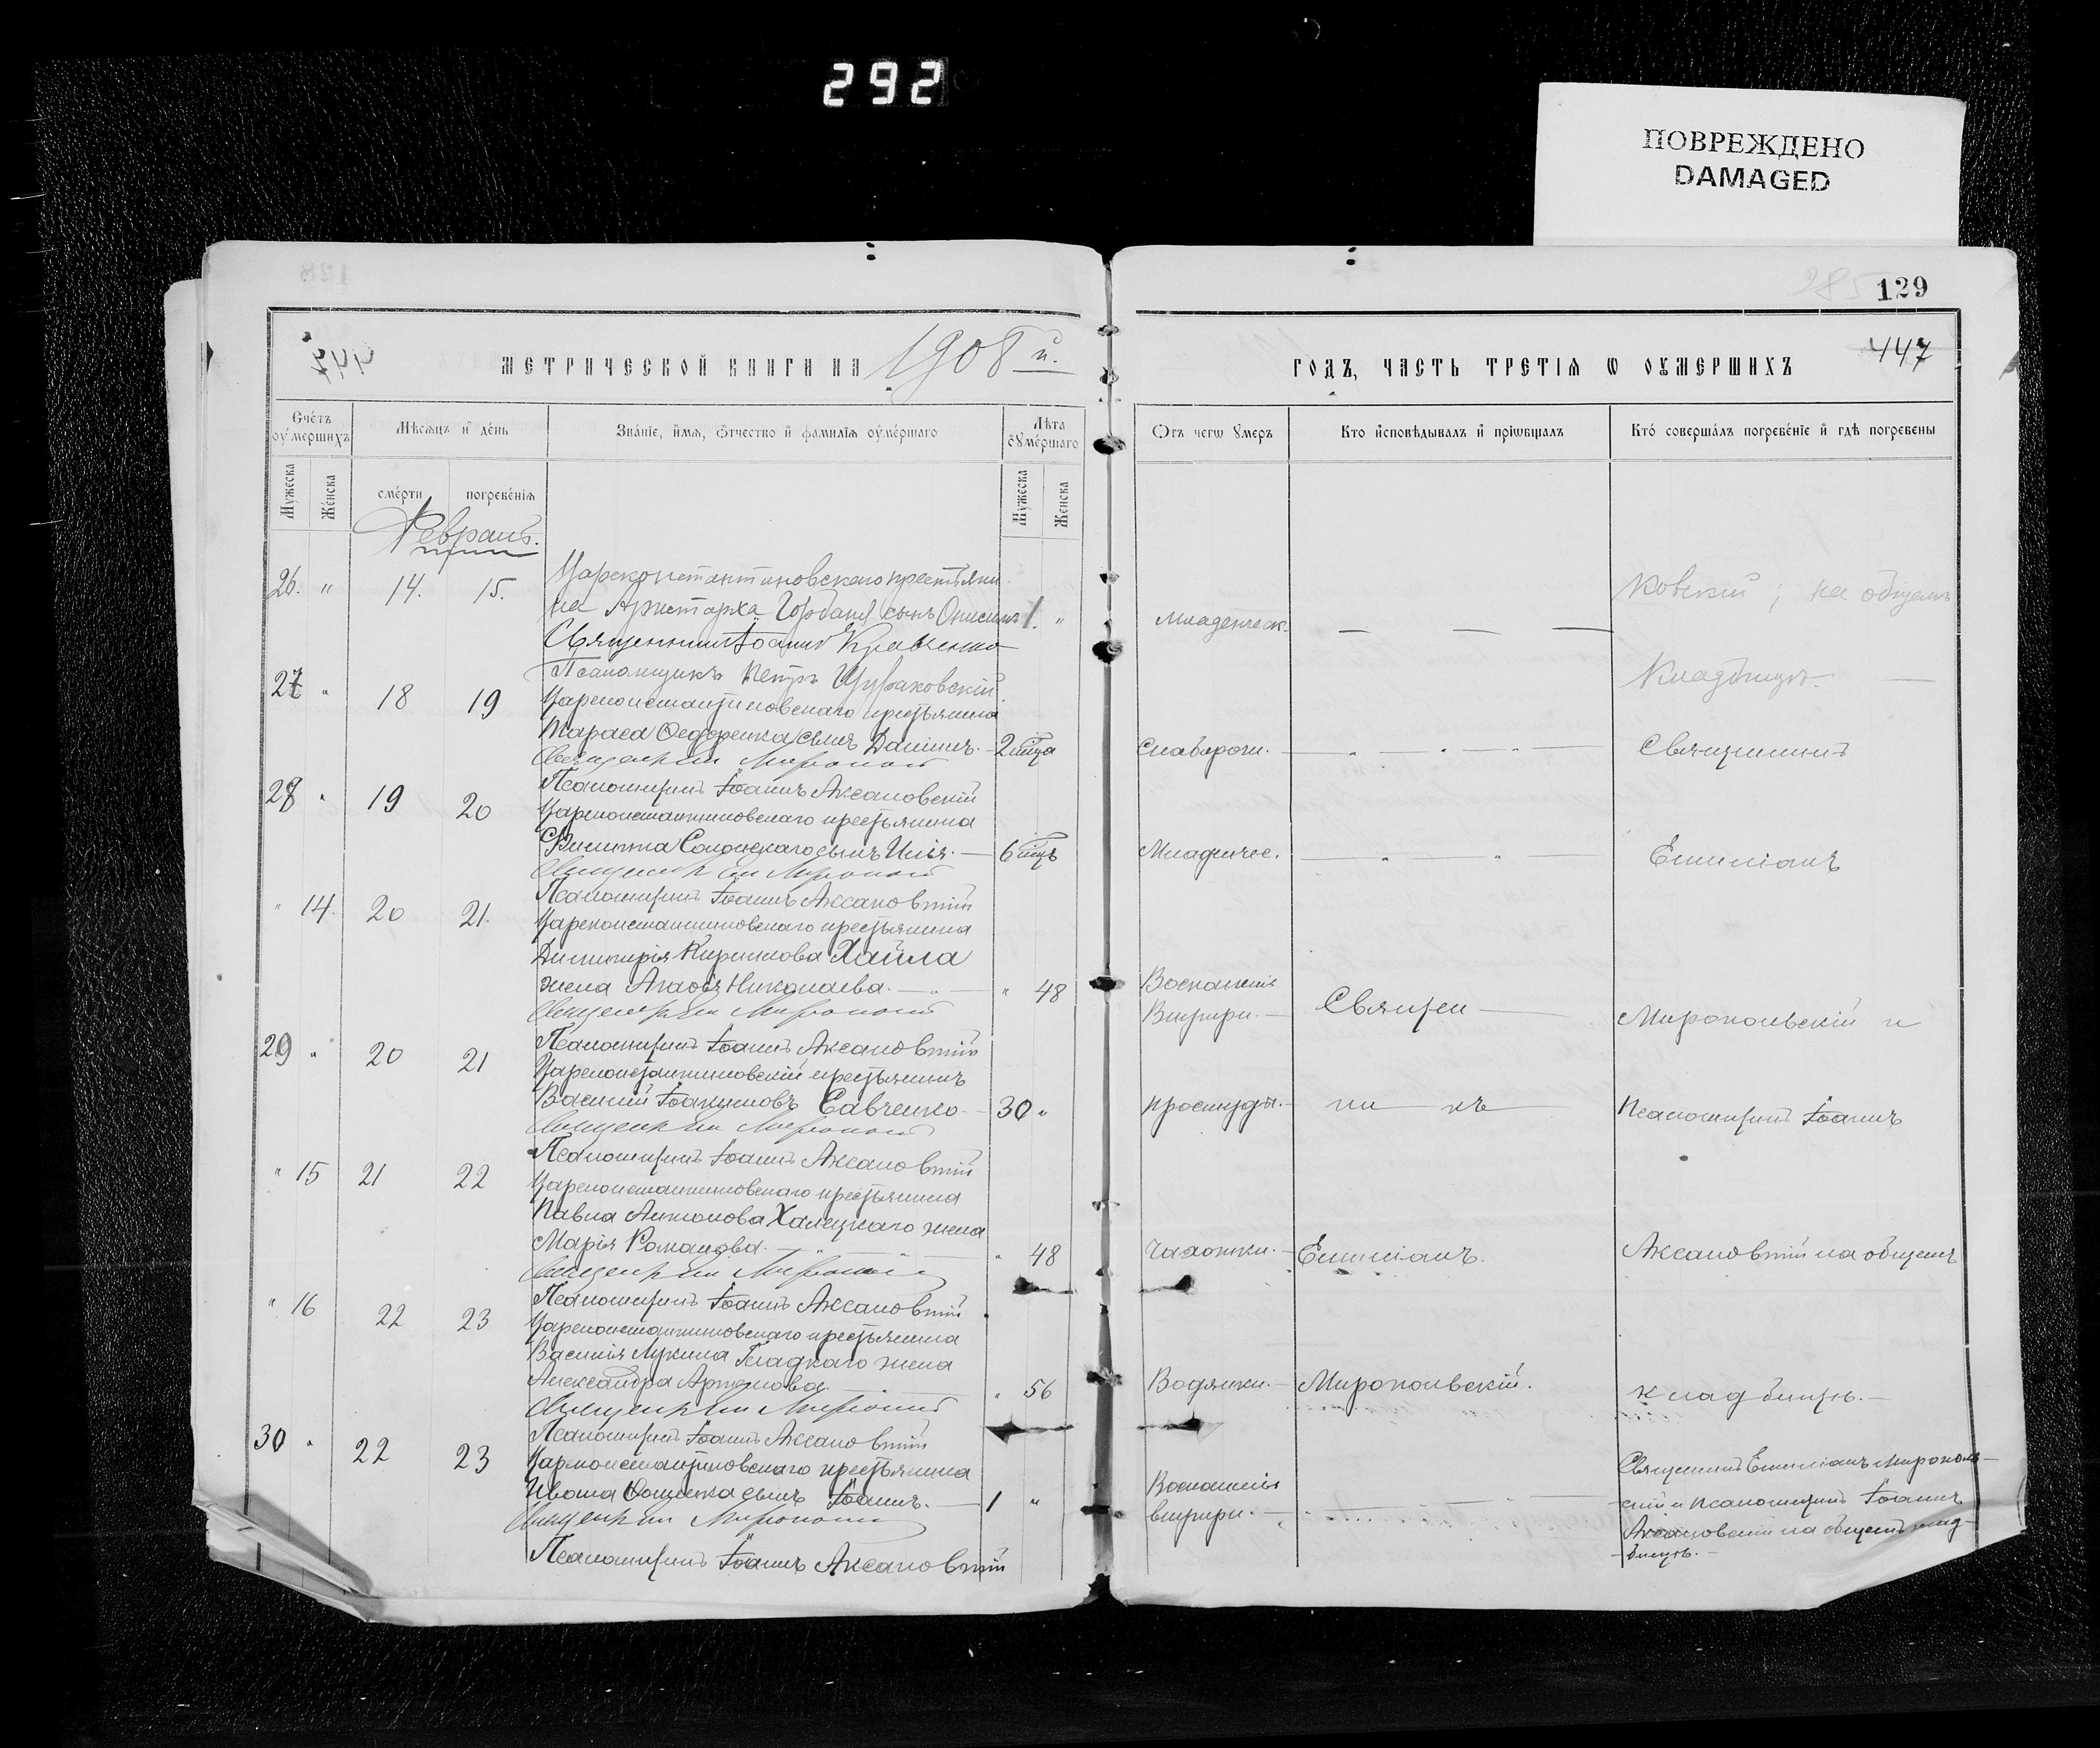 292
ПОВРЕЖДЕНО
DAMAGED
129
447
МЕТРИЧЕСКОЙ КНИГИ НА 1908 й.
ГОДЪ, ЧАСТЬ ТРЕТІЯ Ѡ ОУМЕРШИХЪ
Счетъ оумершихъ
Мѣсяцъ и день
Званіе, имя, отчество и фамилія оумершаго
Лѣта оумершаго
Отъ чегѡ умеръ
Кто исповѣдывалъ и пріѡбщалъ
Кто совершалъ погребеніе и гдѣ погребены
Мужеска
Женска
смерти
погребенія
Мужеска
Женска
Февраль.
26. " 14. 15. Цареконстантиновскаго крестьяни-
на Аристарха Горбаня сынъ Онисимъ 1. " Младенческ.
ковскій; на общемъ
Священникъ Іоаннъ Кравченко
Псаломщикъ Петръ
кладбищѣ.
27 " 18 19 Цареконстантиновскаго крестьянина
Тараса Федоренка сынъ Даніилъ. 2 мѣсяца Слаборожд.
Священникъ
Священникъ Миропол
Псаломщикъ Іоаннъ Аксановскій
28 " 19 20 Цареконстантиновскаго крестьянина
Филиппа сынъ Илія. 6 мѣсц Младенчес.
Емиліанъ
Священникъ Миропол
Псаломщикъ Іоаннъ Аксановскій
" 14. 20 21. Цареконстантиновскаго крестьянина
Димитрія Кириллова Хайла
жена Агафія Николаева. " 48 Воспаленія
внутри. Священ
Миропольскій и
Священникъ Миропол
Псаломщикъ Іоаннъ Аксановскій
29 " 20 21 Цареконстантиновскій крестьянинъ
Василій Іоакимовъ Савченко. 30 " простуды. ни къ
псаломщикъ Іоаннъ
Священникъ Миропол
Псаломщикъ Іоаннъ Аксановскій
" 15 21 22 Цареконстантиновскаго крестьянина
Павла Антонова Халецкаго жена
Марія Романова. " 48 чахотки. Емиліанъ.
Аксановскій на общемъ
Священникъ Миропол
Псаломщикъ Іоаннъ Аксановскій
" 16 22 23 Цареконстантиновскаго крестьянина
Василія Лукина Гладкаго жена
Александра Артемова. " 56 Водянки. Миропольскій.
кладбищѣ.
Священникъ Миропол
Псаломщикъ Іоаннъ Аксановскій
30 " 22 23 Цареконстантиновскаго крестьянина
Ивана сынъ Іоаннъ. 1 " Воспаленія
внутри.
Священникъ Емиліанъ Мирополь-
скій и псаломщикъ Іоаннъ
Аксановскій на общемъ клад-
бищѣ.
Священникъ Миропол
Псаломщикъ Іоаннъ Аксановскій